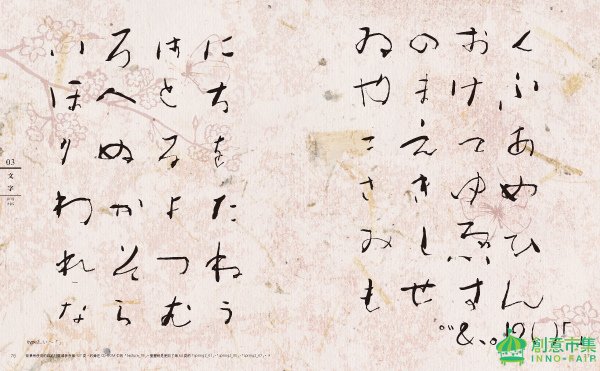 いろはに
ほへとち
りぬるを
わかよた
れそつね
ならむう
ゐのおく
やまけふ
こえてあ
さきゆめ
みしゑひ
もせすん
゜゛&、。!?()「」
03
文字
76
創意市集
INNO-FAIR